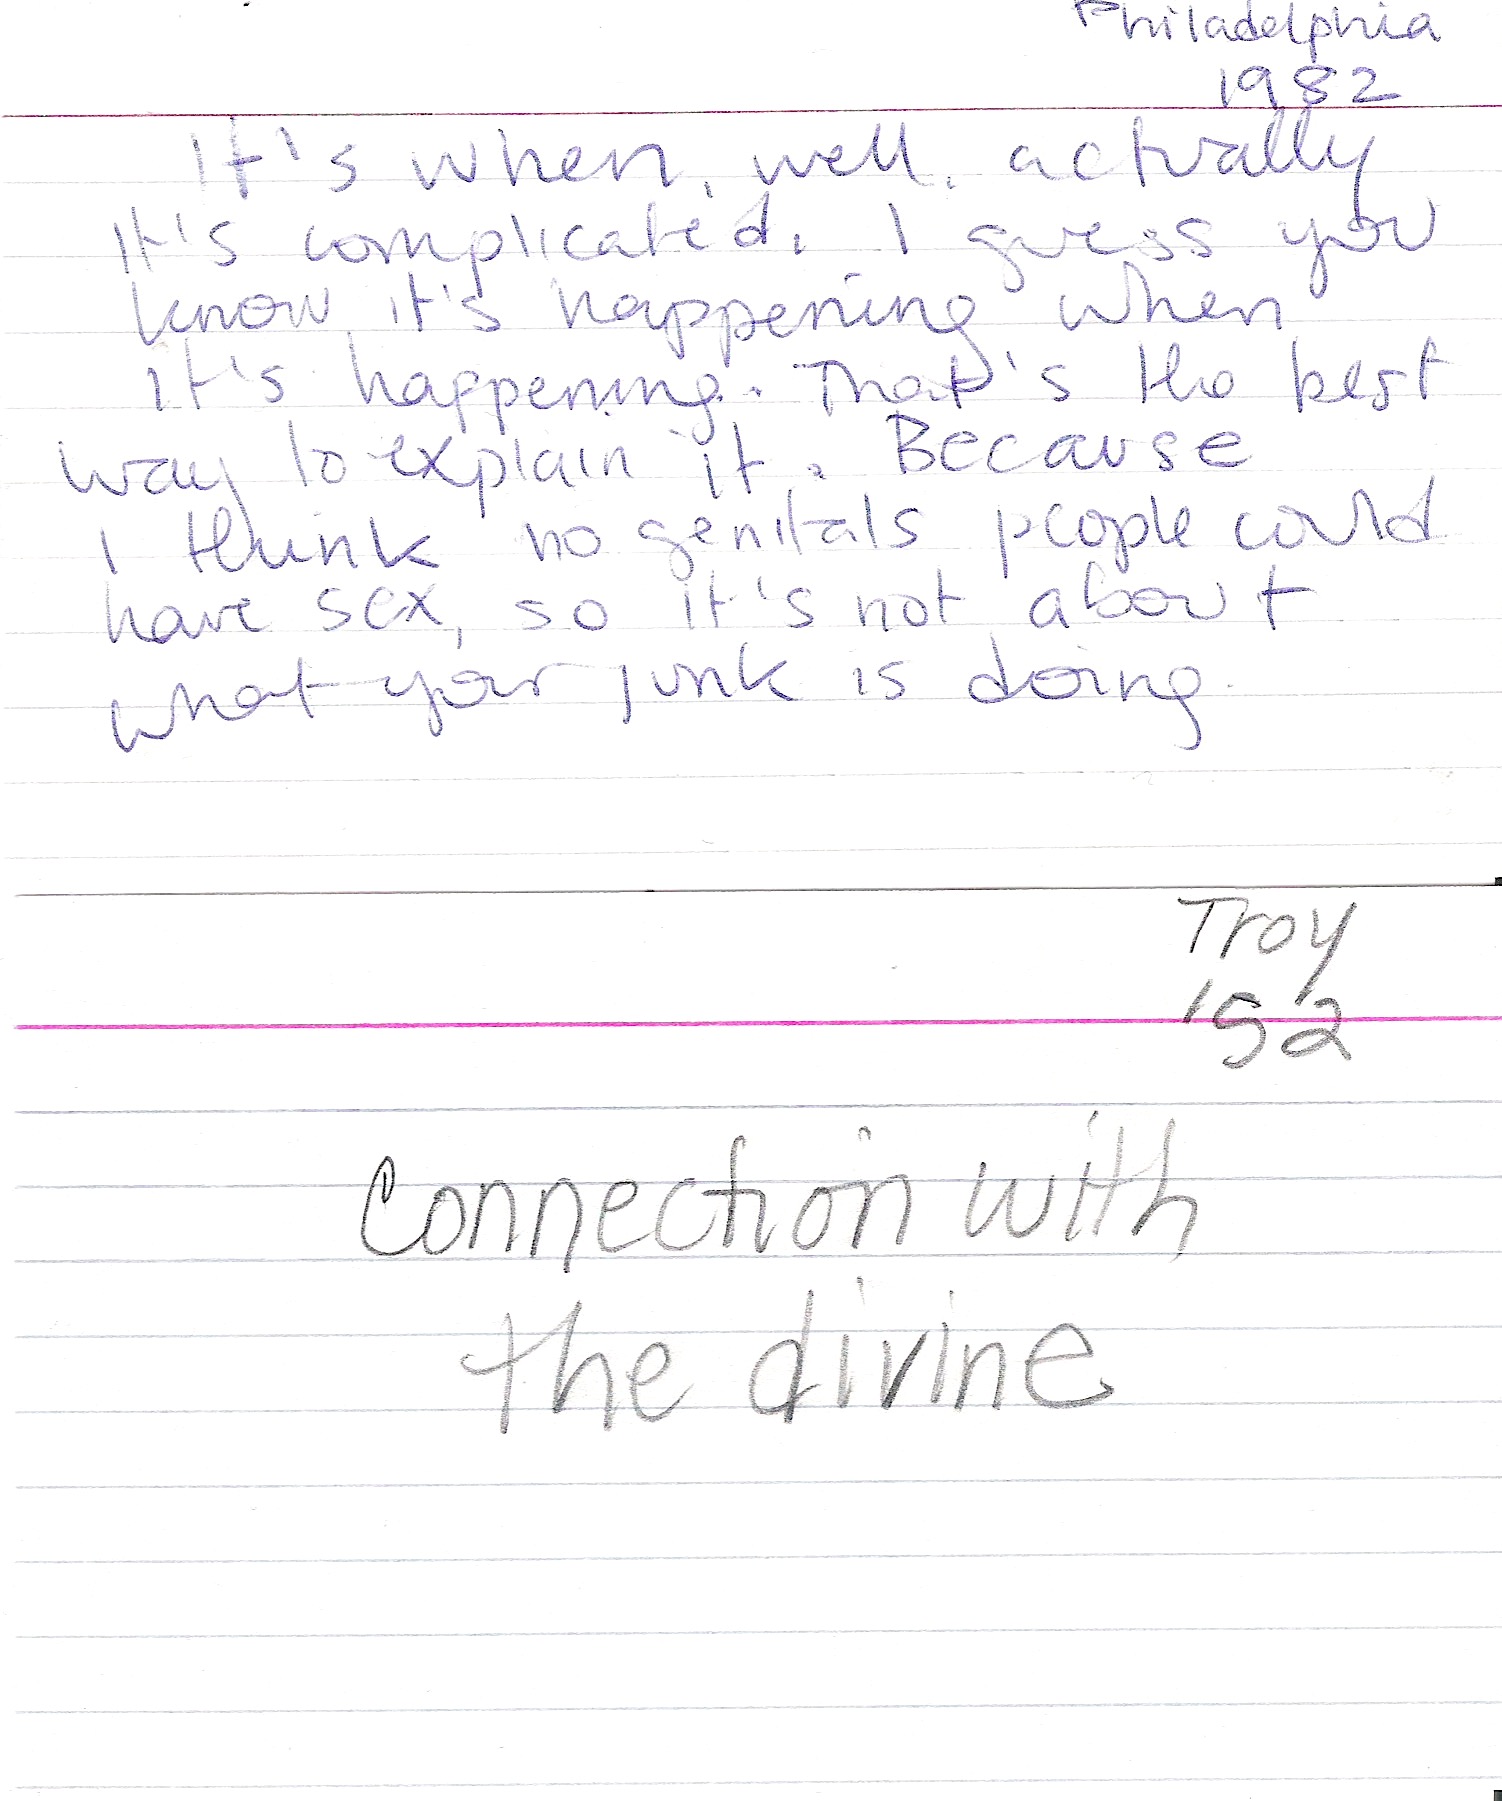 Philadelphia
1982
It's when, well, actually
it's complicated. I guess you
know it's happening when
it's happening. That's the best
way to explain it. Because
I think no genitals people could
have sex, so it's not about
what your junk is doing.
Troy
'52
Connection with
the divine